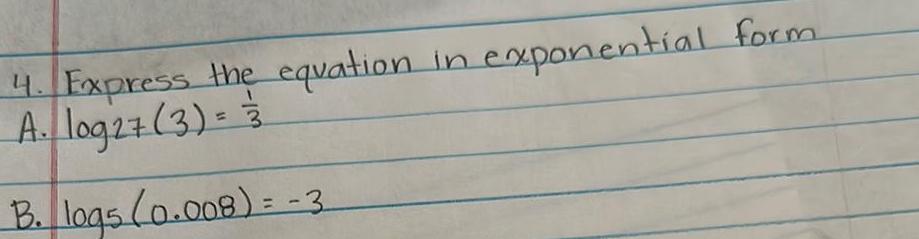 4. Express the equation in exponential form
A. log27(3) = 1/3
B. log5(0.008) = -3